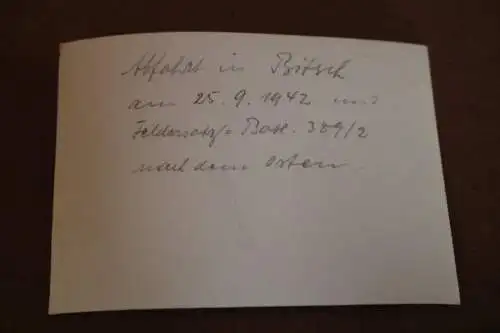 Abfahrt in Bitsch
am 25. 9. 1942 mit
Feldersatz= Batl. 389/2
nach dem Osten.